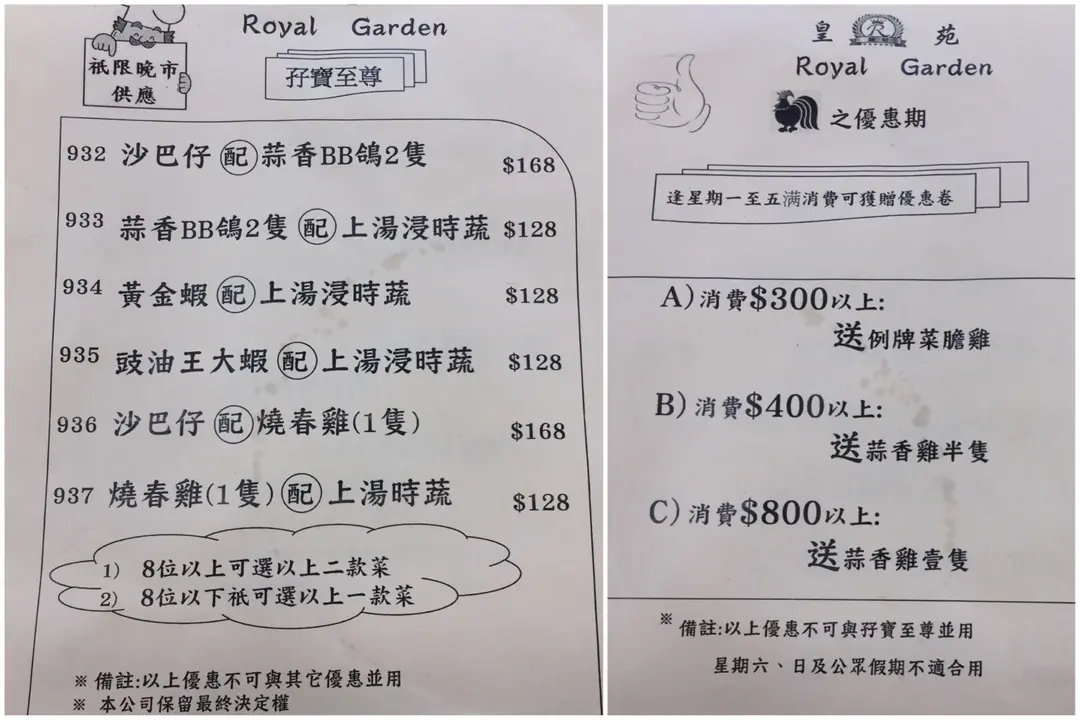 Royal Garden
祇限晚市
供應
孖寶至尊
932 沙巴仔 配 蒜香BB鴿2隻 $168
933 蒜香BB鴿2隻 配 上湯浸時蔬 $128
934 黃金蝦 配 上湯浸時蔬 $128
935 豉油王大蝦 配 上湯浸時蔬 $128
936 沙巴仔 配 燒春雞(1隻) $168
937 燒春雞(1隻) 配 上湯時蔬 $128
1) 8位以上可選以上二款菜
2) 8位以下祇可選以上一款菜
※ 備註:以上優惠不可與其它優惠並用
※ 本公司保留最終決定權
皇 苑
Royal Garden
之優惠期
逢星期一至五满消費可獲贈優惠卷
A) 消費$300以上:
送例牌菜膽雞
B) 消費$400以上:
送蒜香雞半隻
C) 消費$800以上:
送蒜香雞壹隻
※ 備註:以上優惠不可與孖寶至尊並用
星期六、日及公眾假期不適合用